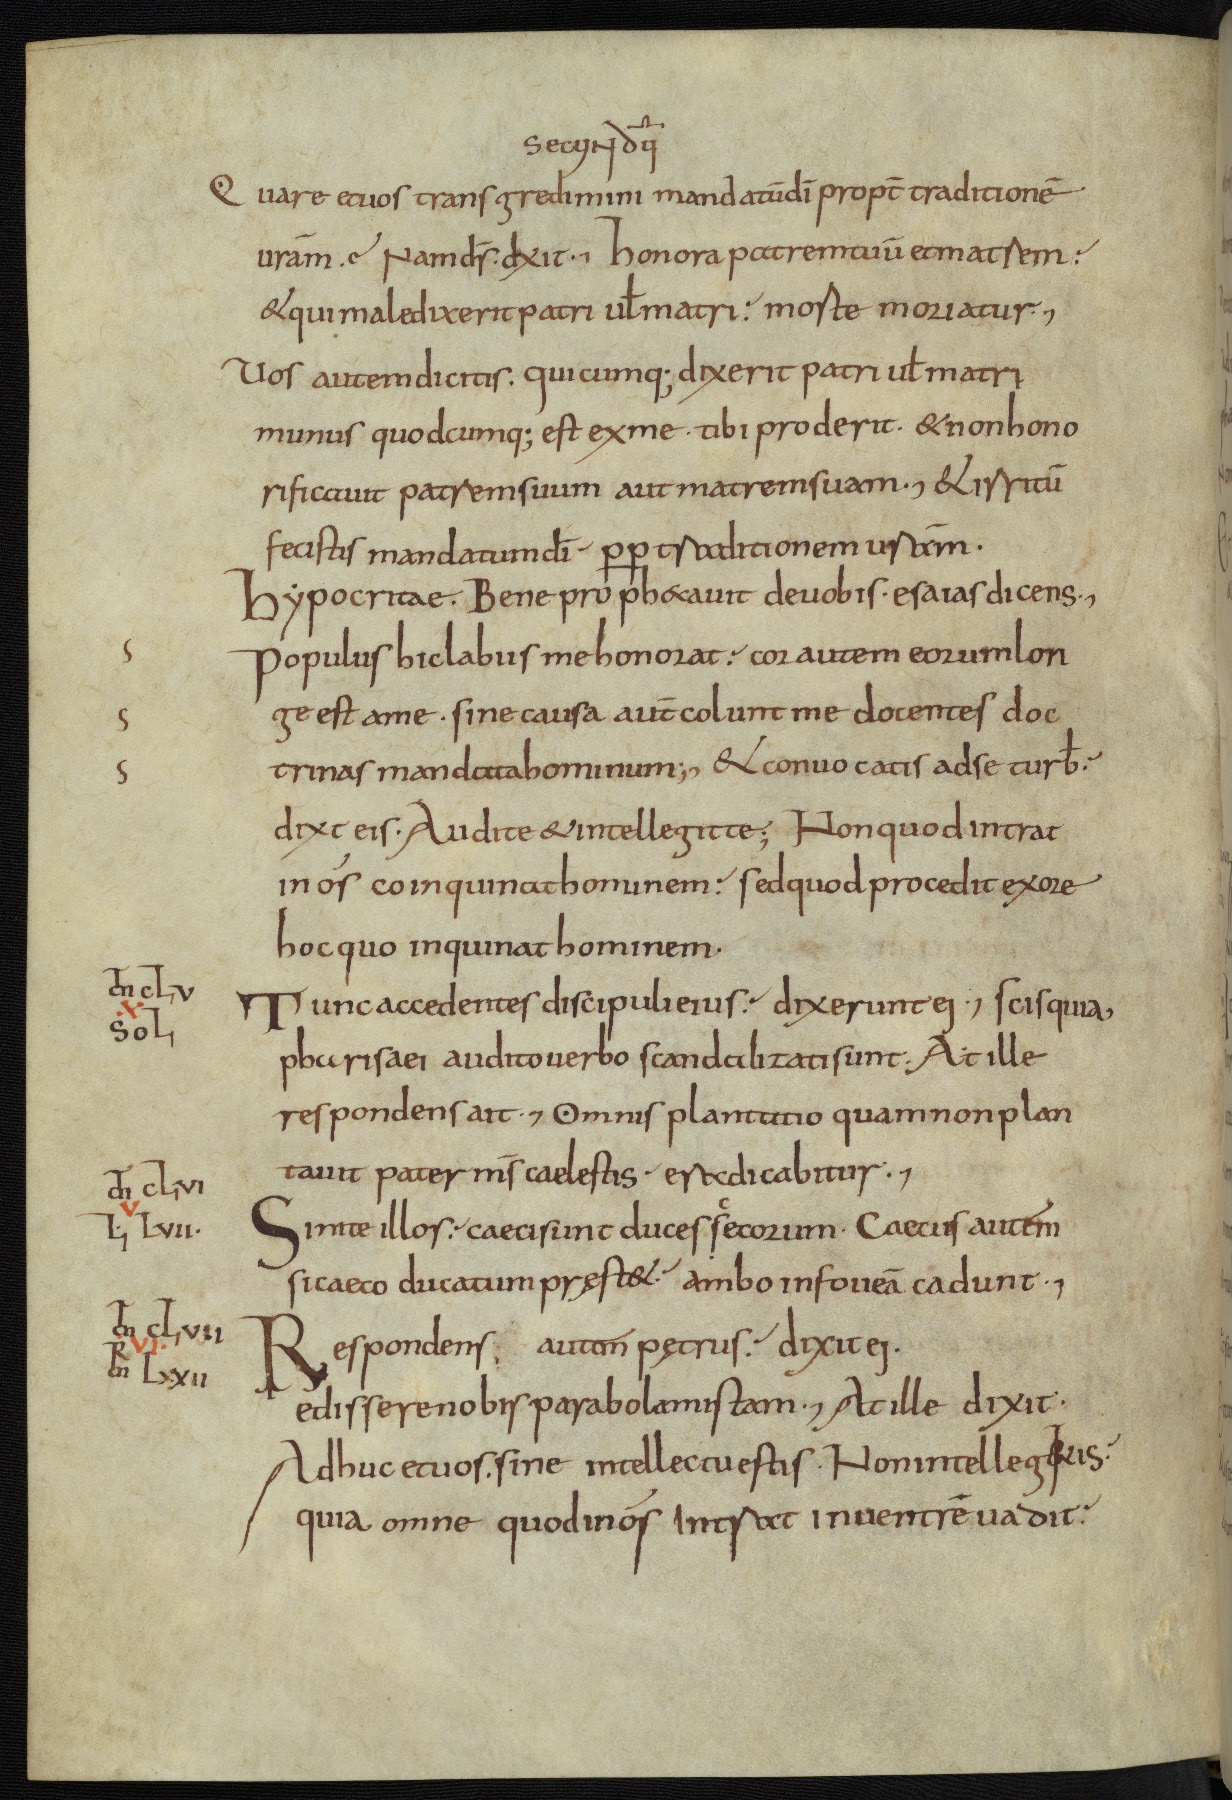 SECUNDŪ
Quare etuos transgredimini mandatūdī propt̄ traditionē
urām. Namd̄s. dxit., honora patremtuū etmatrem:
&quimaledixerit patri ul̄ matri: morte moriatur.,
Uos autemdicitis. quicumq; dixerit patri ul̄ matri
munus quodcumq; est exme. tibi proderit. &nonhono
rificauit patremsuum aut matremsuam., & irritū
fecistis mandatumdī. pp traditionem urām.
hypocritae. Bene propħ&auit deuobis. esaias dicens.,
Populus hiclabiis mehonorat: cor autem eorumlon
ge est ame. sine causa aut̄ colunt me docentes doc
trinas mandatahominum;, & conuocatis adse turb̄:
dixt eis. Audite &intellegite; Nonquod intrat
inos coinquinathominem: sedquod procedit exore
hocquo inquinat hominem.
m̄ clv
x
Tunc accedentes discipulieius: dixerunt ei., scisquia
pharisaei auditouerbo scandalizatisunt. At ille
respondens ait., Omnis plantatio quamnonplan
tauit pater m̄s caelestis. eradicabitur.,
m̄ clvi
v
L. Lvii.
Sinite illos: caecisunt duces secorum. Caecus autem
sicaeco ducatum pręst&: ambo infoueā cadunt.,
m̄ clvii
vi
m̄ Lxxii
Respondens; autem petrus: dixit ei.
edisserenobis parabolamistam., At ille dixit.
Adhuc etuos. sine intellectuestis. Nonintellegitis:
quia omne quodinos intrat inuentrē uadit: